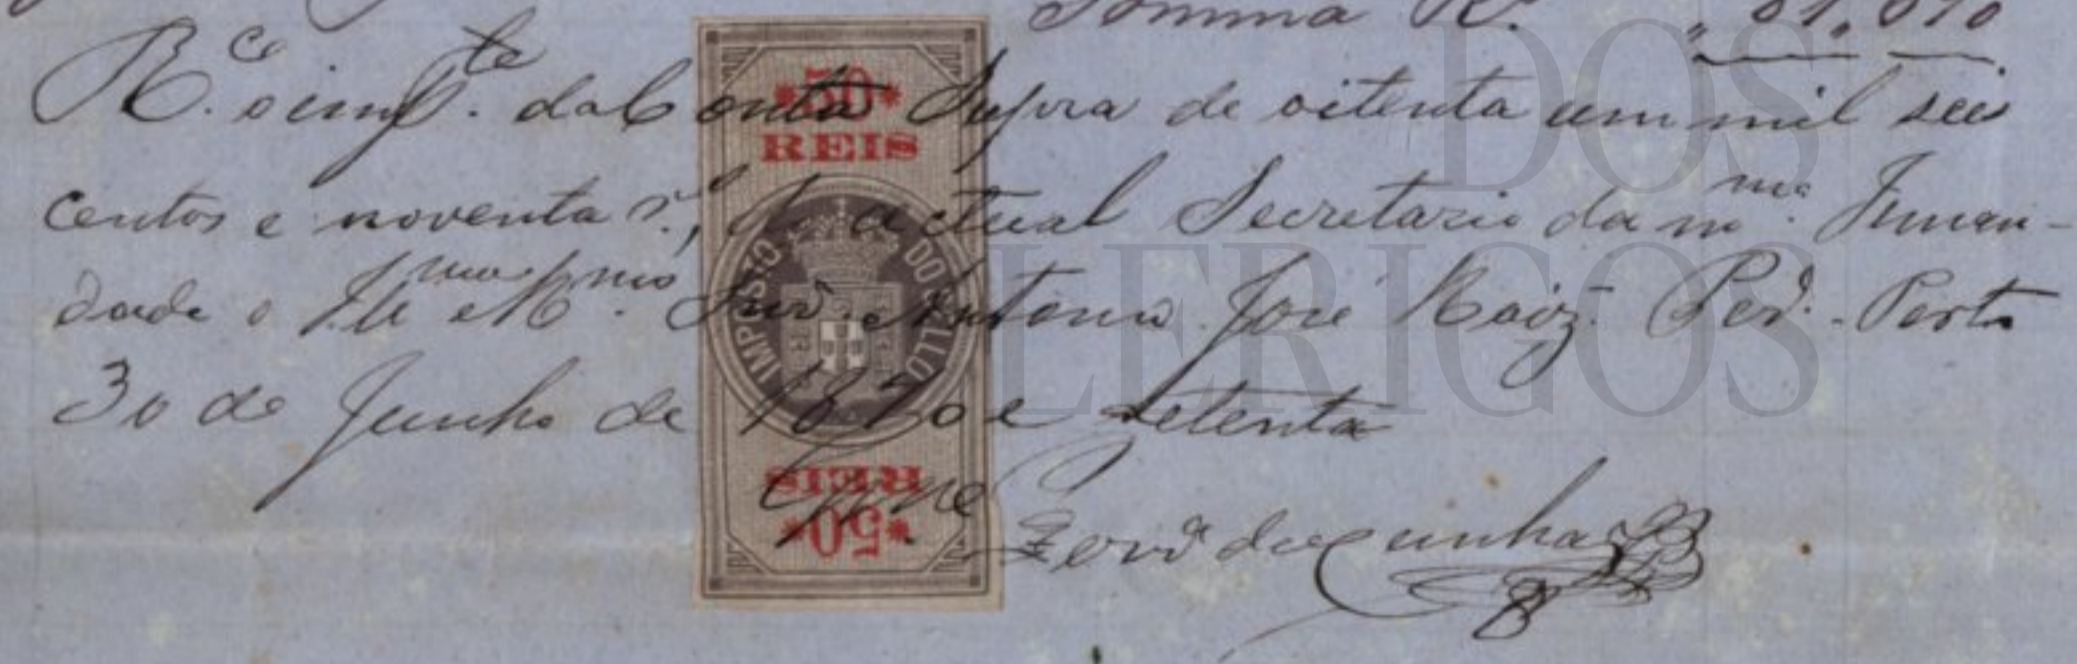 Somma R.s „ 81,690
R.ce o imp.te da Conta Supra de oitenta um mil seis
centos e noventa r.s, do actual Secretario da m.ma Irman-
dade o Ill.mo e R.mo Snr. Antonio José Roiz. Per.a - Porto
30 de Junho de 1870 e setenta
José Ferr.a da Cunha
* 50 *
REIS
IMPOSTO DO SELLO
REIS
* 50 *
DOS
CLERIGOS